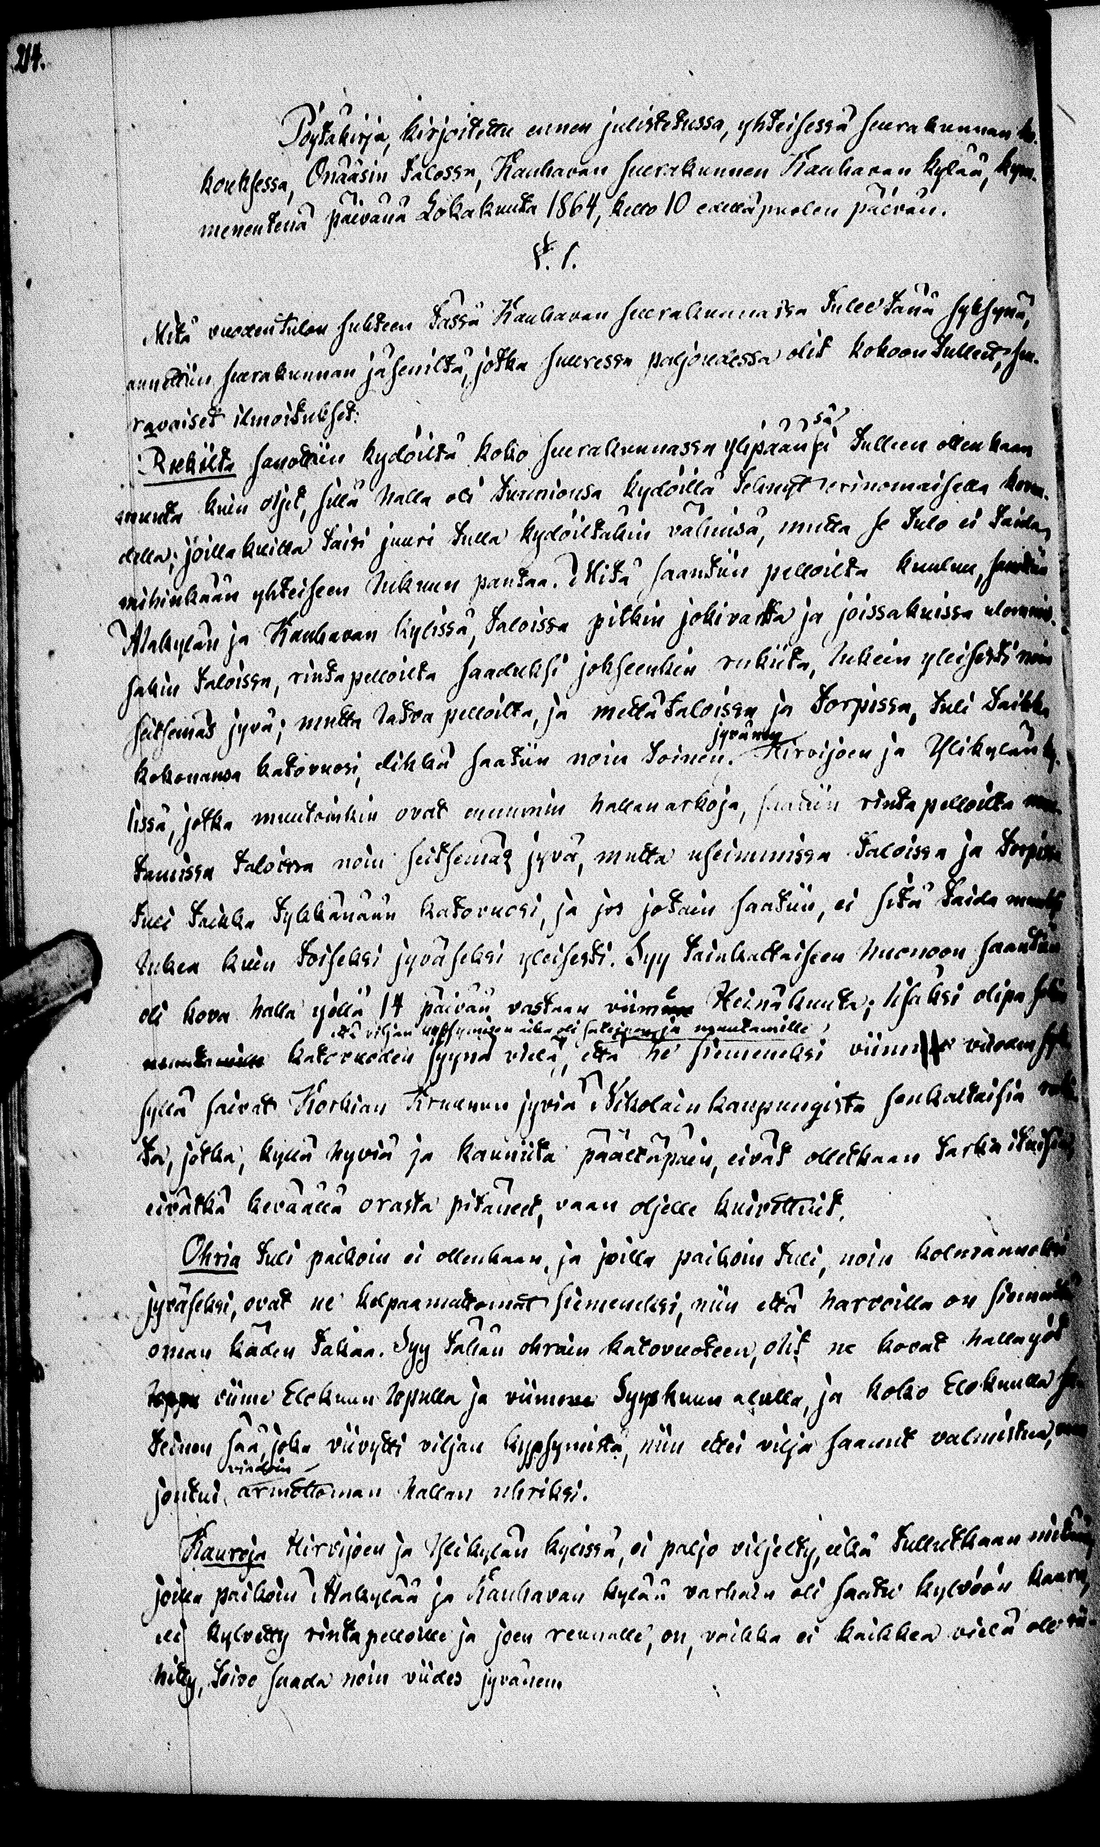 214.
Pöytäkirja, kirjoitettu ennen julistetussa, yhteisessä seurakunnan ko-
kouksessa, Onääsin talossa, Kauhavan seurakunnan Kauhavan kylää, kym-
menentenä päivänä Lokakuuta 1864, kello 10 edellä puolen päivän.
§. 1.
Mitä vuoden tulon suhteen tässä Kauhavan seurakunnassa tulee tänä syksynä,
annettiin seurakunnan jäseniltä, jotka suuressa paljoudessa olit kokoon tulleet, seu-
ravaiset ilmoitukset:
Rukiita sanottiin kydöiltä koko seurakunnassa ylipäänsä ei tulleen ollenkaan
muuta kuin oljet, sillä halla oli turmionsa kydöillä tehnyt erinomaisella kovuu-
della; joillakuilla taisi juuri tulla kydöiltäkin vähäisä, mutta se tulo ei taida
mihinkään yhteiseen lukuun pantaa. Mitä saantiin pelloilta kuuluu, saatiin
Alakylän ja Kauhavan kylissä, taloissa pitkin jokivartta ja joissakuissa
sakin taloissa, rintapelloilta saaduksi jokseenkin rukiita, lukein yleisesti noin
seitsemäs jyvä; mutta latva pelloilta, ja mettä taloissa ja torpissa, tuli taikka
jyvänen
kokonansa katovuosi, elikkä saatiin noin toinen. Hirvijoen ja Ylikylän ky-
lissä, jotka muutoinkin ovat enemmin hallanarkoja, saatiin rintapelloilta muu-
tamissa taloissa noin seitsemäs jyvä, mutta useimmissa taloissa ja torpissa
tuli taikka tykkänään katovuosi, ja jos jotain saatiin, ei sitä taida muuksi
lukea kuin toiseksi jyväseksi yleisesti. Syy tainkaltaiseen huonoon saantiin
oli kova halla yöllä 14 päivää vastaan Heinäkuuta; lisäksi olipa
että viljan kypsymisen aika oli sateinen, ja muutamille
katovuoden syynä vielä, että he siemeneksi viime vuoden syk-
syllä saivat Korkian Kruunun jyviä Nikolain kaupungista senkaltaisia rukii-
ta, jotka, kyllä hyviä ja kauniita päältäpäin, eivät olletkaan tarkk itäisiä,
eivätkä keväällä orasta pitäneet, vaan oljelle kuivettuit.
Ohria tuli paikoin ei ollenkaan, ja joilla paikoin tuli, noin kolmanneksi
jyväseksi, ovat ne kelpaamattomat siemeneksi, niin että harvoilla on siementä
oman käden takaa. Syy tähän ohrain katovuoteen, olit ne kovat hallayöt
viime Elokuun lopulla ja viimeen Syyskuun alulla, ja koko Elokuulla sa-
teinen sää, joka viivytti viljan kypsymistä, niin ettei vilja saanut valmistua, vaan
viimein
joutui armottoman hallan uhriksi.
Kauroja Hirvijoen ja Ylikylän kylissä, ei paljo viljelty, eikä tullutkaan mitään,
joilla paikoin Alakylää ja Kauhavan kylää varhain oli saatu kylvöön kaura,
eli kylvetty rintapelloille ja joen reunalle, on, vaikka ei kaikkea vielä ole rii-
hitty, toivo saada noin viides jyvänen.